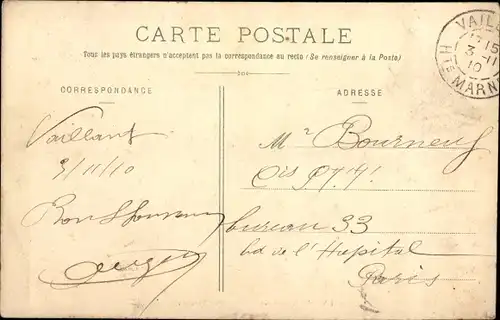 CARTE POSTALE
Tous les pays étrangers n'acceptent pas la correspondance au recto (Se renseigner à la Poste)
CORRESPONDANCE
ADRESSE
VAILL
15
3 - 11
10
Hte MARN
Vaillant
3/11/10
Mr Bourneuf
Cis P.T.T.
bureau 33
bd de l'Hopital
Paris